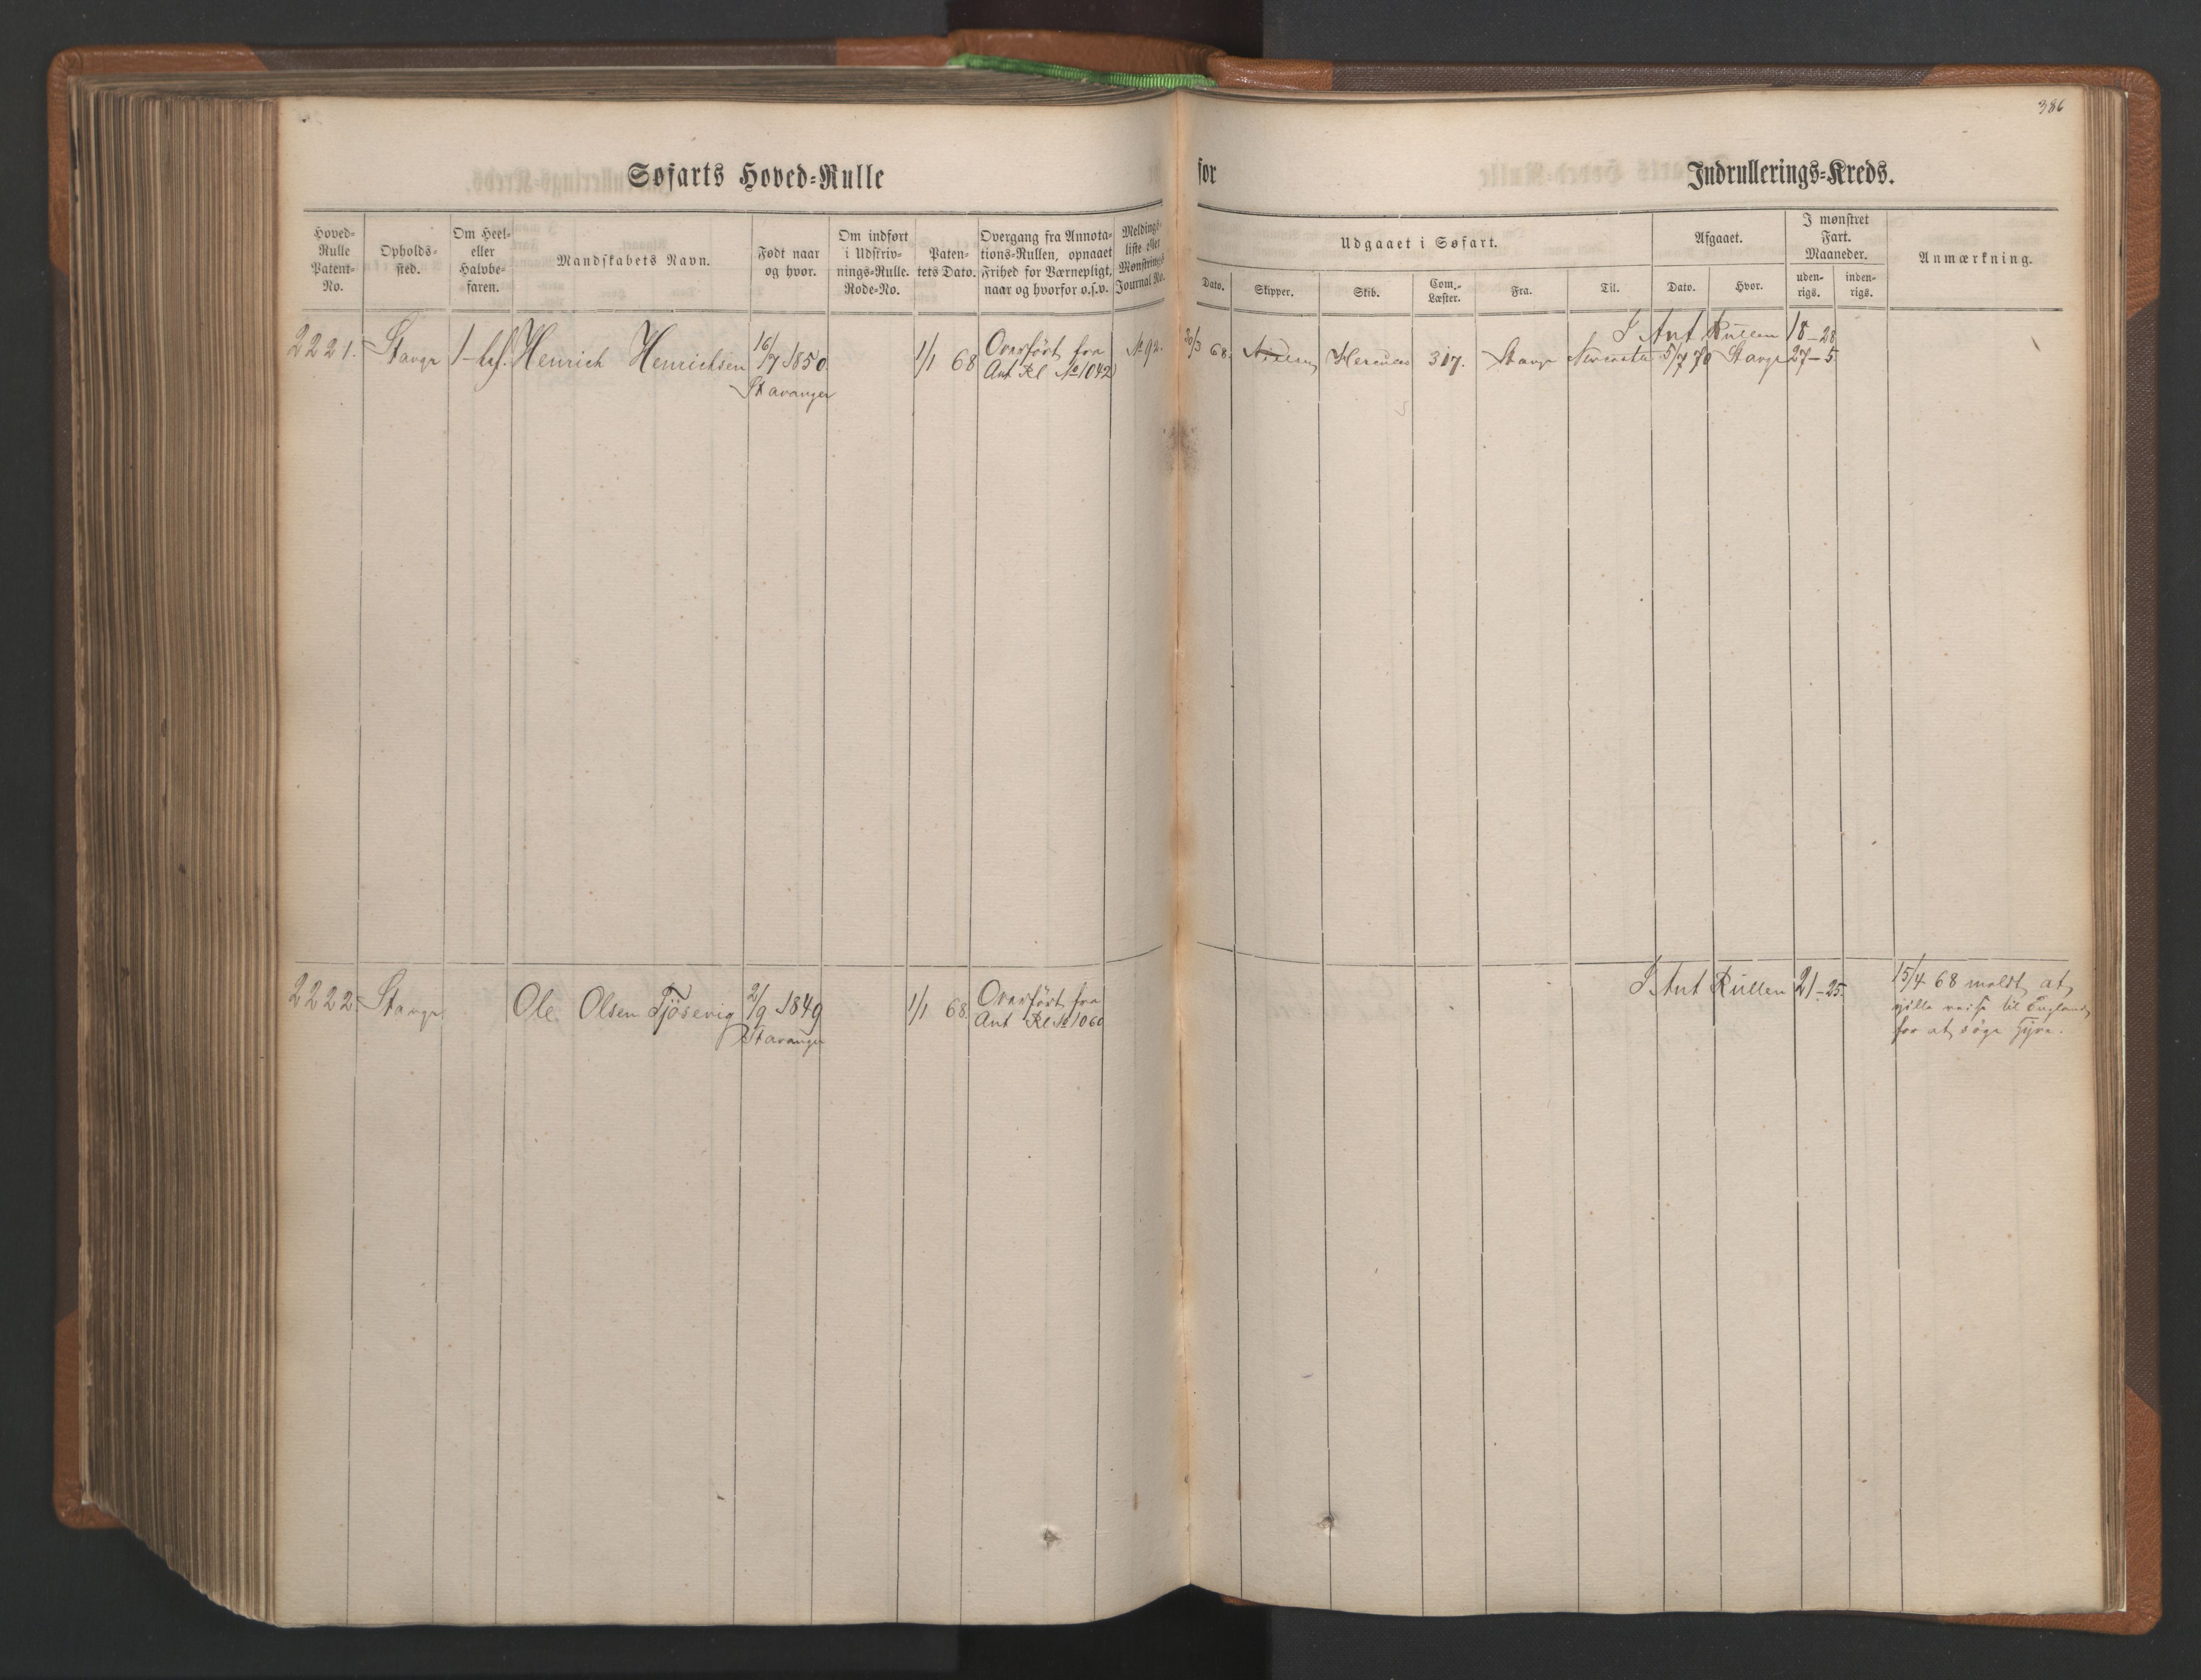 386
Søfarts Hoved-Rulle
for
Indrullerings-Kreds.
Hoved-
Rulle
Patent-
No.
Opholds-
sted.
Om Heel-
eller
Halvbe-
faren.
Mandskabets Navn.
Født naar
og hvor.
Om indført
i Udskriv-
nings-Rulle.
Rode-No.
Paten-
tets Dato.
Overgang fra Annota-
tions-Rullen, opnaaet
Frihed for Værnepligt,
naar og hvorfor o.s.v.
Meldings-
liste eller
Mønstrings
Journal No.
Udgaaet i Søfart.
Dato.
Skipper.
Skib.
Com.-
Læster.
Fra.
Til.
Afgaaet.
Dato.
Hvor.
I mønstret
Fart.
Maaneder.
uden-
rigs.
inden-
rigs.
Anmærkning.
I Ant Rullen 18-28
2221. Stavgr 1-bef. Henrich Henrichsen 16/7 1850 1/1 68 Overført fra № 92. 30/3 68. Hercules 317. Stavgr 5/7 70 Stavgr 27-5
Stavanger Ant Rl № 1042
2222. Stavgr. Ole Olsen Tjösevig 2/9 1849 1/1 68. Overført fra I. Ant Rullen 21-25. 15/4 68 meldt, at
Stavanger Ant Rl № 1060 vilde reise til England,
for at søge Hyre.